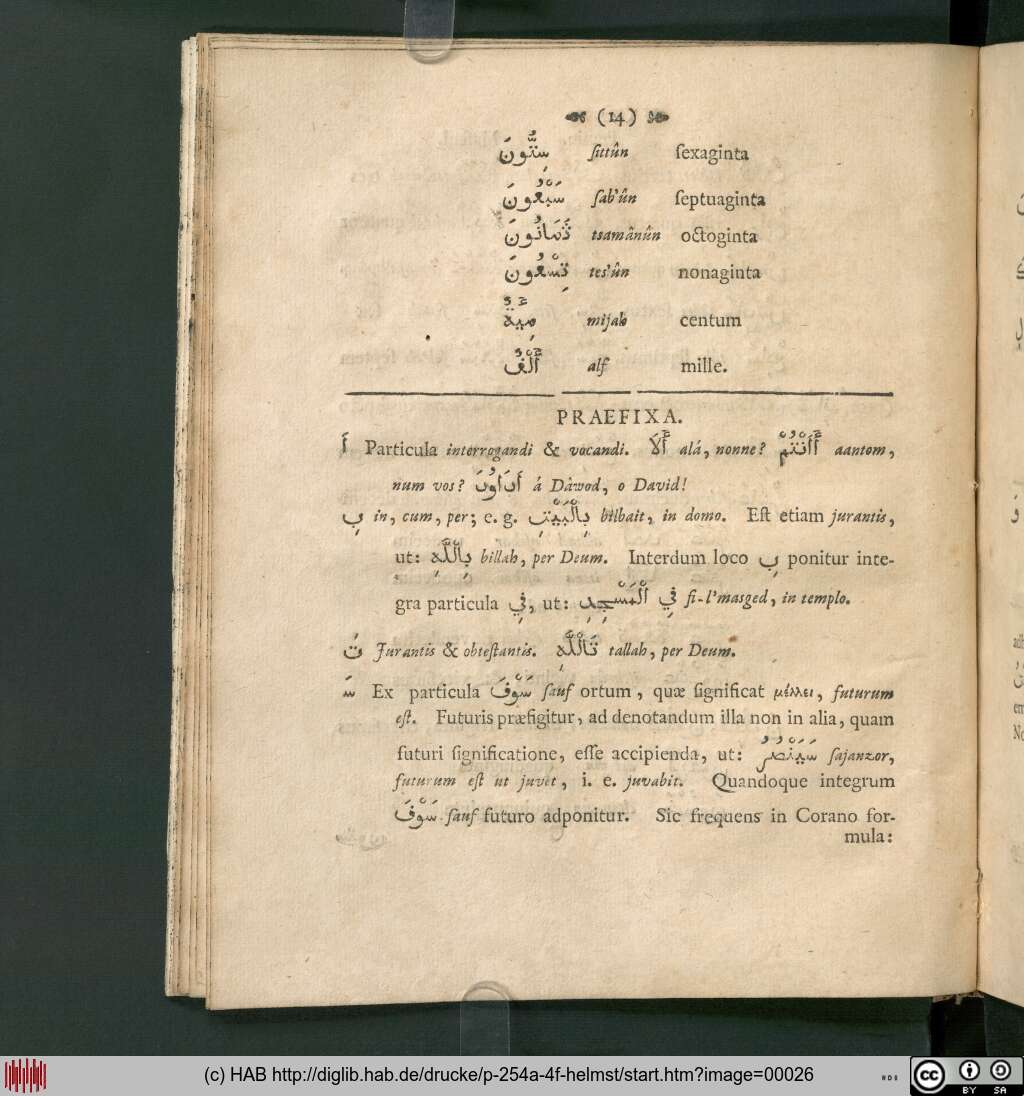 (14)
سِتُّونَ ſittûn ſexaginta
سَبْعُونَ ſab'ûn ſeptuaginta
ثَمَانُونَ tsamânûn octoginta
تِسْعُونَ tes'ûn nonaginta
مِيَةٌ mijah centum
أَلْفٌ alf mille.
PRAEFIXA.
أَ Particula interrogandi & vocandi. أَلَا alá, nonne? أَأَنْتُمْ aantom,
num vos? أَدَاوُنَ á Dàwod, o David!
بِ in, cum, per; e. g. بِالْبَيْتِ bilbait, in domo. Eſt etiam jurantis,
ut: بِاللَّهِ billah, per Deum. Interdum loco بِ ponitur inte-
gra particula فِي, ut: فِي الْمَسْجِدِ fi-l'masged, in templo.
تَ Jurantis & obteſtantis. تَاللَّهِ tallah, per Deum.
سَ Ex particula سَوْفَ ſauf ortum, quæ ſignificat μέλλει, futurum
eſt. Futuris præfigitur, ad denotandum illa non in alia, quam
futuri ſignificatione, eſſe accipienda, ut: سَيَنْصُرُ ſajanzor,
futurum eſt ut juvet, i. e. juvabit. Quandoque integrum
سَوْفَ ſauf futuro adponitur. Sic frequens in Corano for-
mula:
(c) HAB http://diglib.hab.de/drucke/p-254a-4f-helmst/start.htm?image=00026
cc BY SA